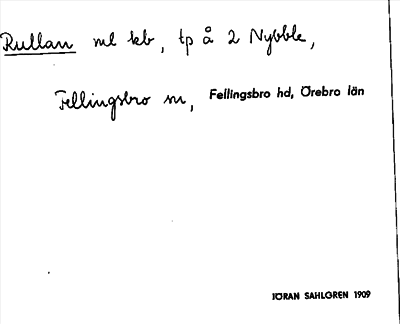 Rullan ml kb, tp å 2 Nybble,
Fellingsbro sn, Fellingsbro hd, Örebro län
JÖRAN SAHLGREN 1909